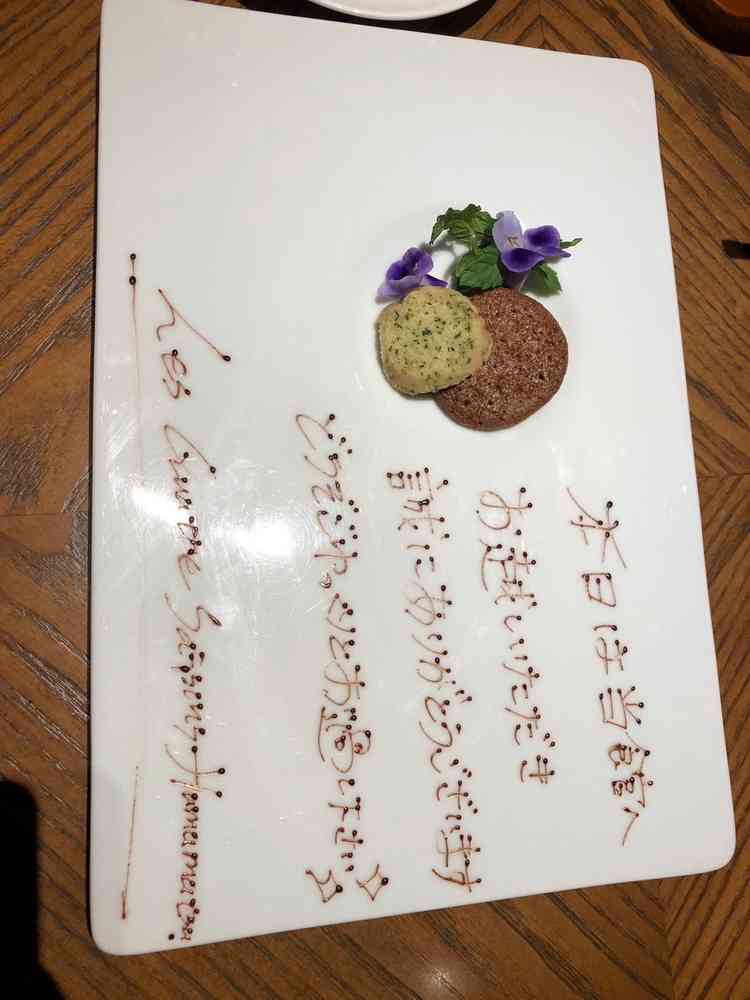 本日は当館へ
お越しいただき
誠にありがとうございます
どうぞごゆっくりとお過し下さい
Les Quatre Saisons Hamanako